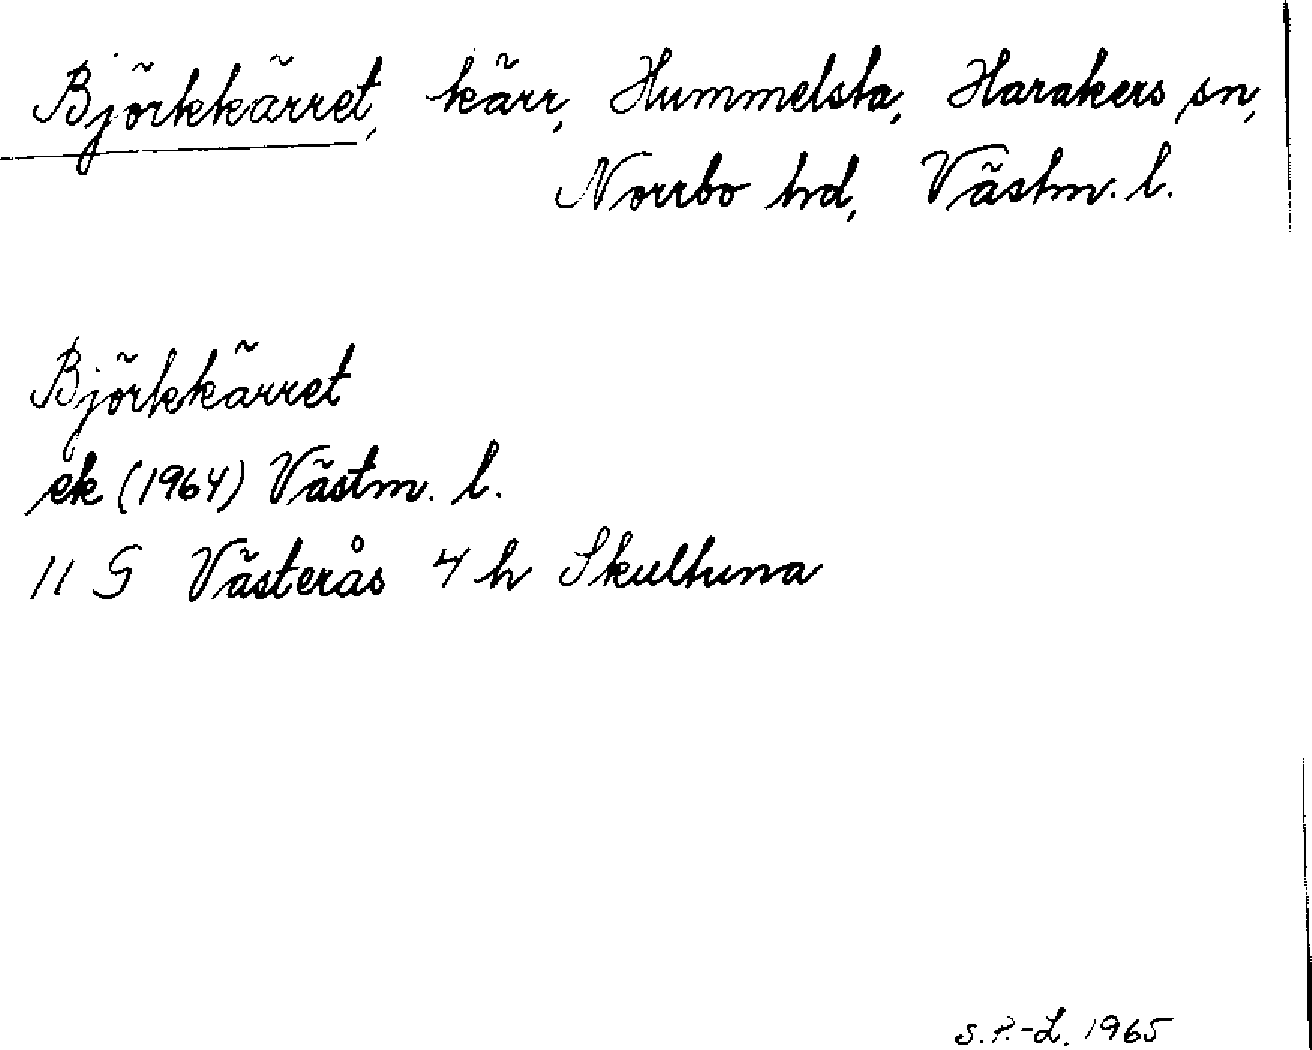 Björkkärret, kärr, Hummelsta, Harakers sn,
Norrbo hd, Västm. l.
Björkkärret
ek (1964) Västm. l.
11 G Västerås 4 h Skultuna
S. P.-L. 1965